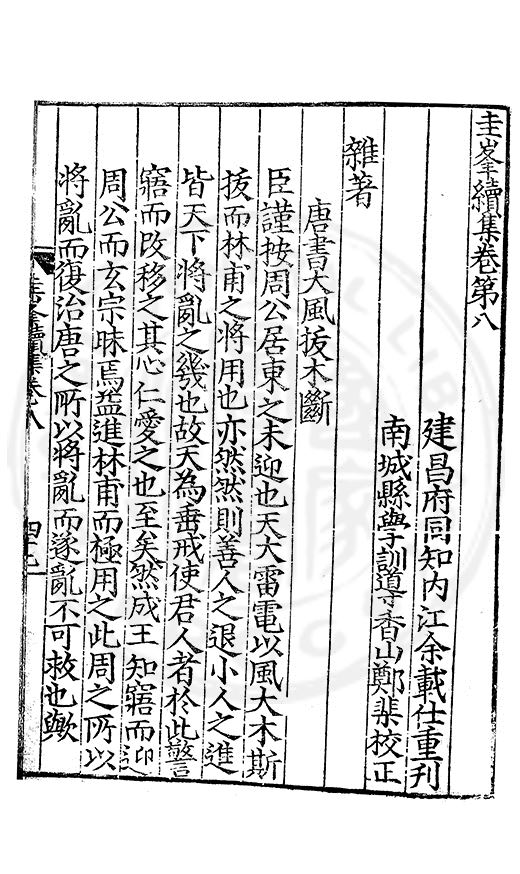 圭峯續集卷第八
建昌府同知內江余載仕重刊
南城縣學訓導香山鄭棐校正
雜著
唐書大風拔木斷
臣謹按周公居東之未迎也天大雷電以風大木斯
拔而林甫之將用也亦然然則善人之退小人之進
皆天下將亂之幾也故天為垂戒使君人者於此警
寤而改移之其心仁愛之也至矣然成王知寤而迎
周公而玄宗昧焉益進林甫而極用之此周之所以
將亂而復治唐之所以將亂而遂亂不可救也歟
圭峯續集卷八